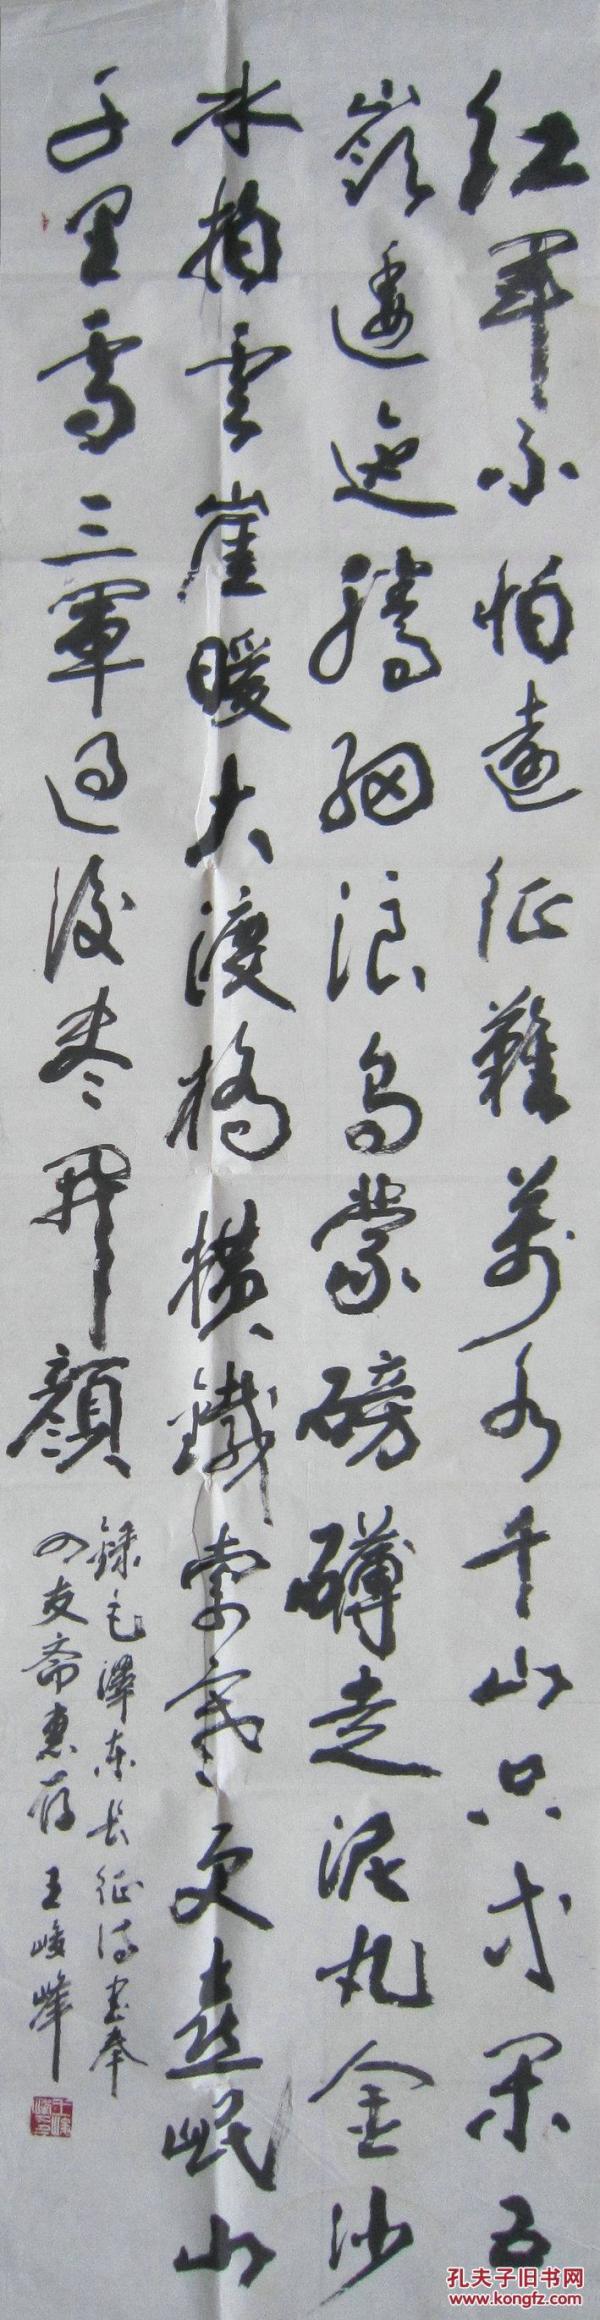 红军不怕遠征難萬水千山只等闲五
嶺逶迤騰細浪烏蒙磅礴走泥丸金沙
水拍雲崖暖大渡橋横鐵索寒更喜岷山
千里雪三軍過後盡開顔
錄毛澤东长征诗書奉
四友斋惠存 王峻峰
孔夫子旧书网
www.kongfz.com